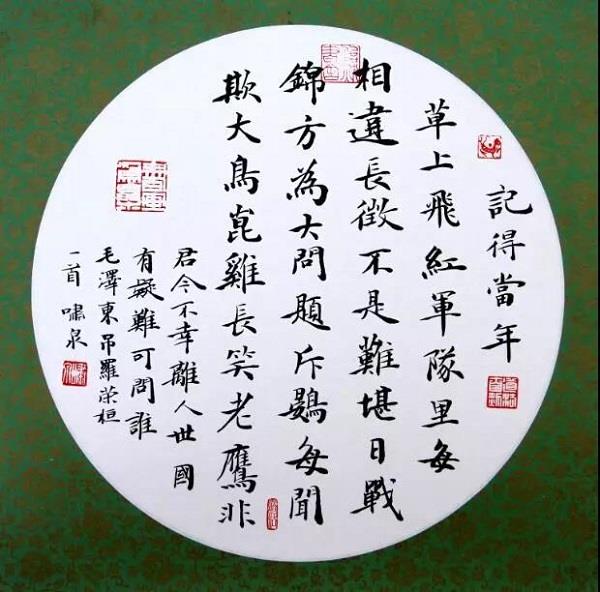 記得當年
草上飛紅軍隊里每
相違長徵不是難堪日戰
錦方為大問題斥鷃每聞
欺大鳥崑雞長笑老鷹非
君今不幸離人世國
有疑難可問誰
毛澤東吊羅荣桓
一首 嘯泉